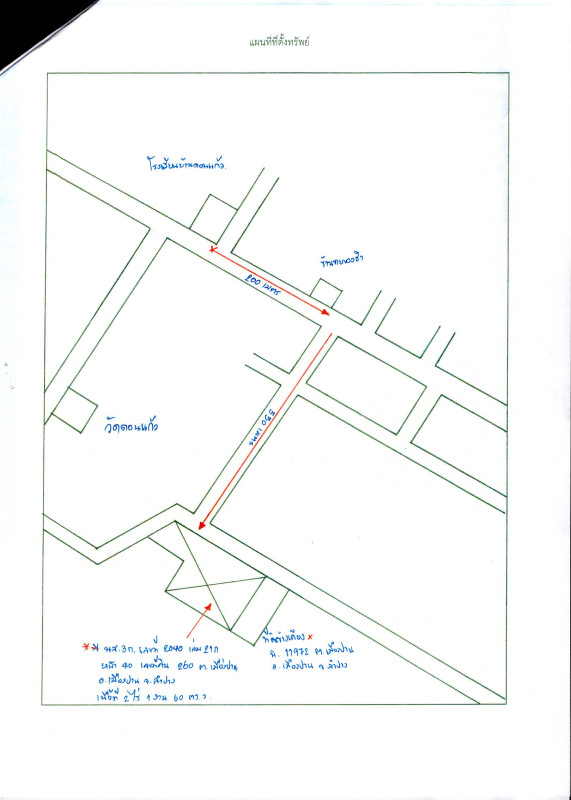 แผนที่ที่ตั้งทรัพย์
โรงเรียนบ้านดอนแก้ว
ร้านของชำ
200 เมตร
550 เมตร
วัดดอนแก้ว
** น.ส.3ก. เลขที่ 2040 เล่ม 21ก
หน้า 40 เลขที่ดิน 260 ต. เมืองปาน
อ. เมืองปาน จ. ลำปาง
เนื้อที่ 2 ไร่ 1 งาน 60 ตร.ว
ที่ดินข้างเคียง *
ฉ. 11972 ต. เมืองปาน
อ. เมืองปาน จ. ลำปาง